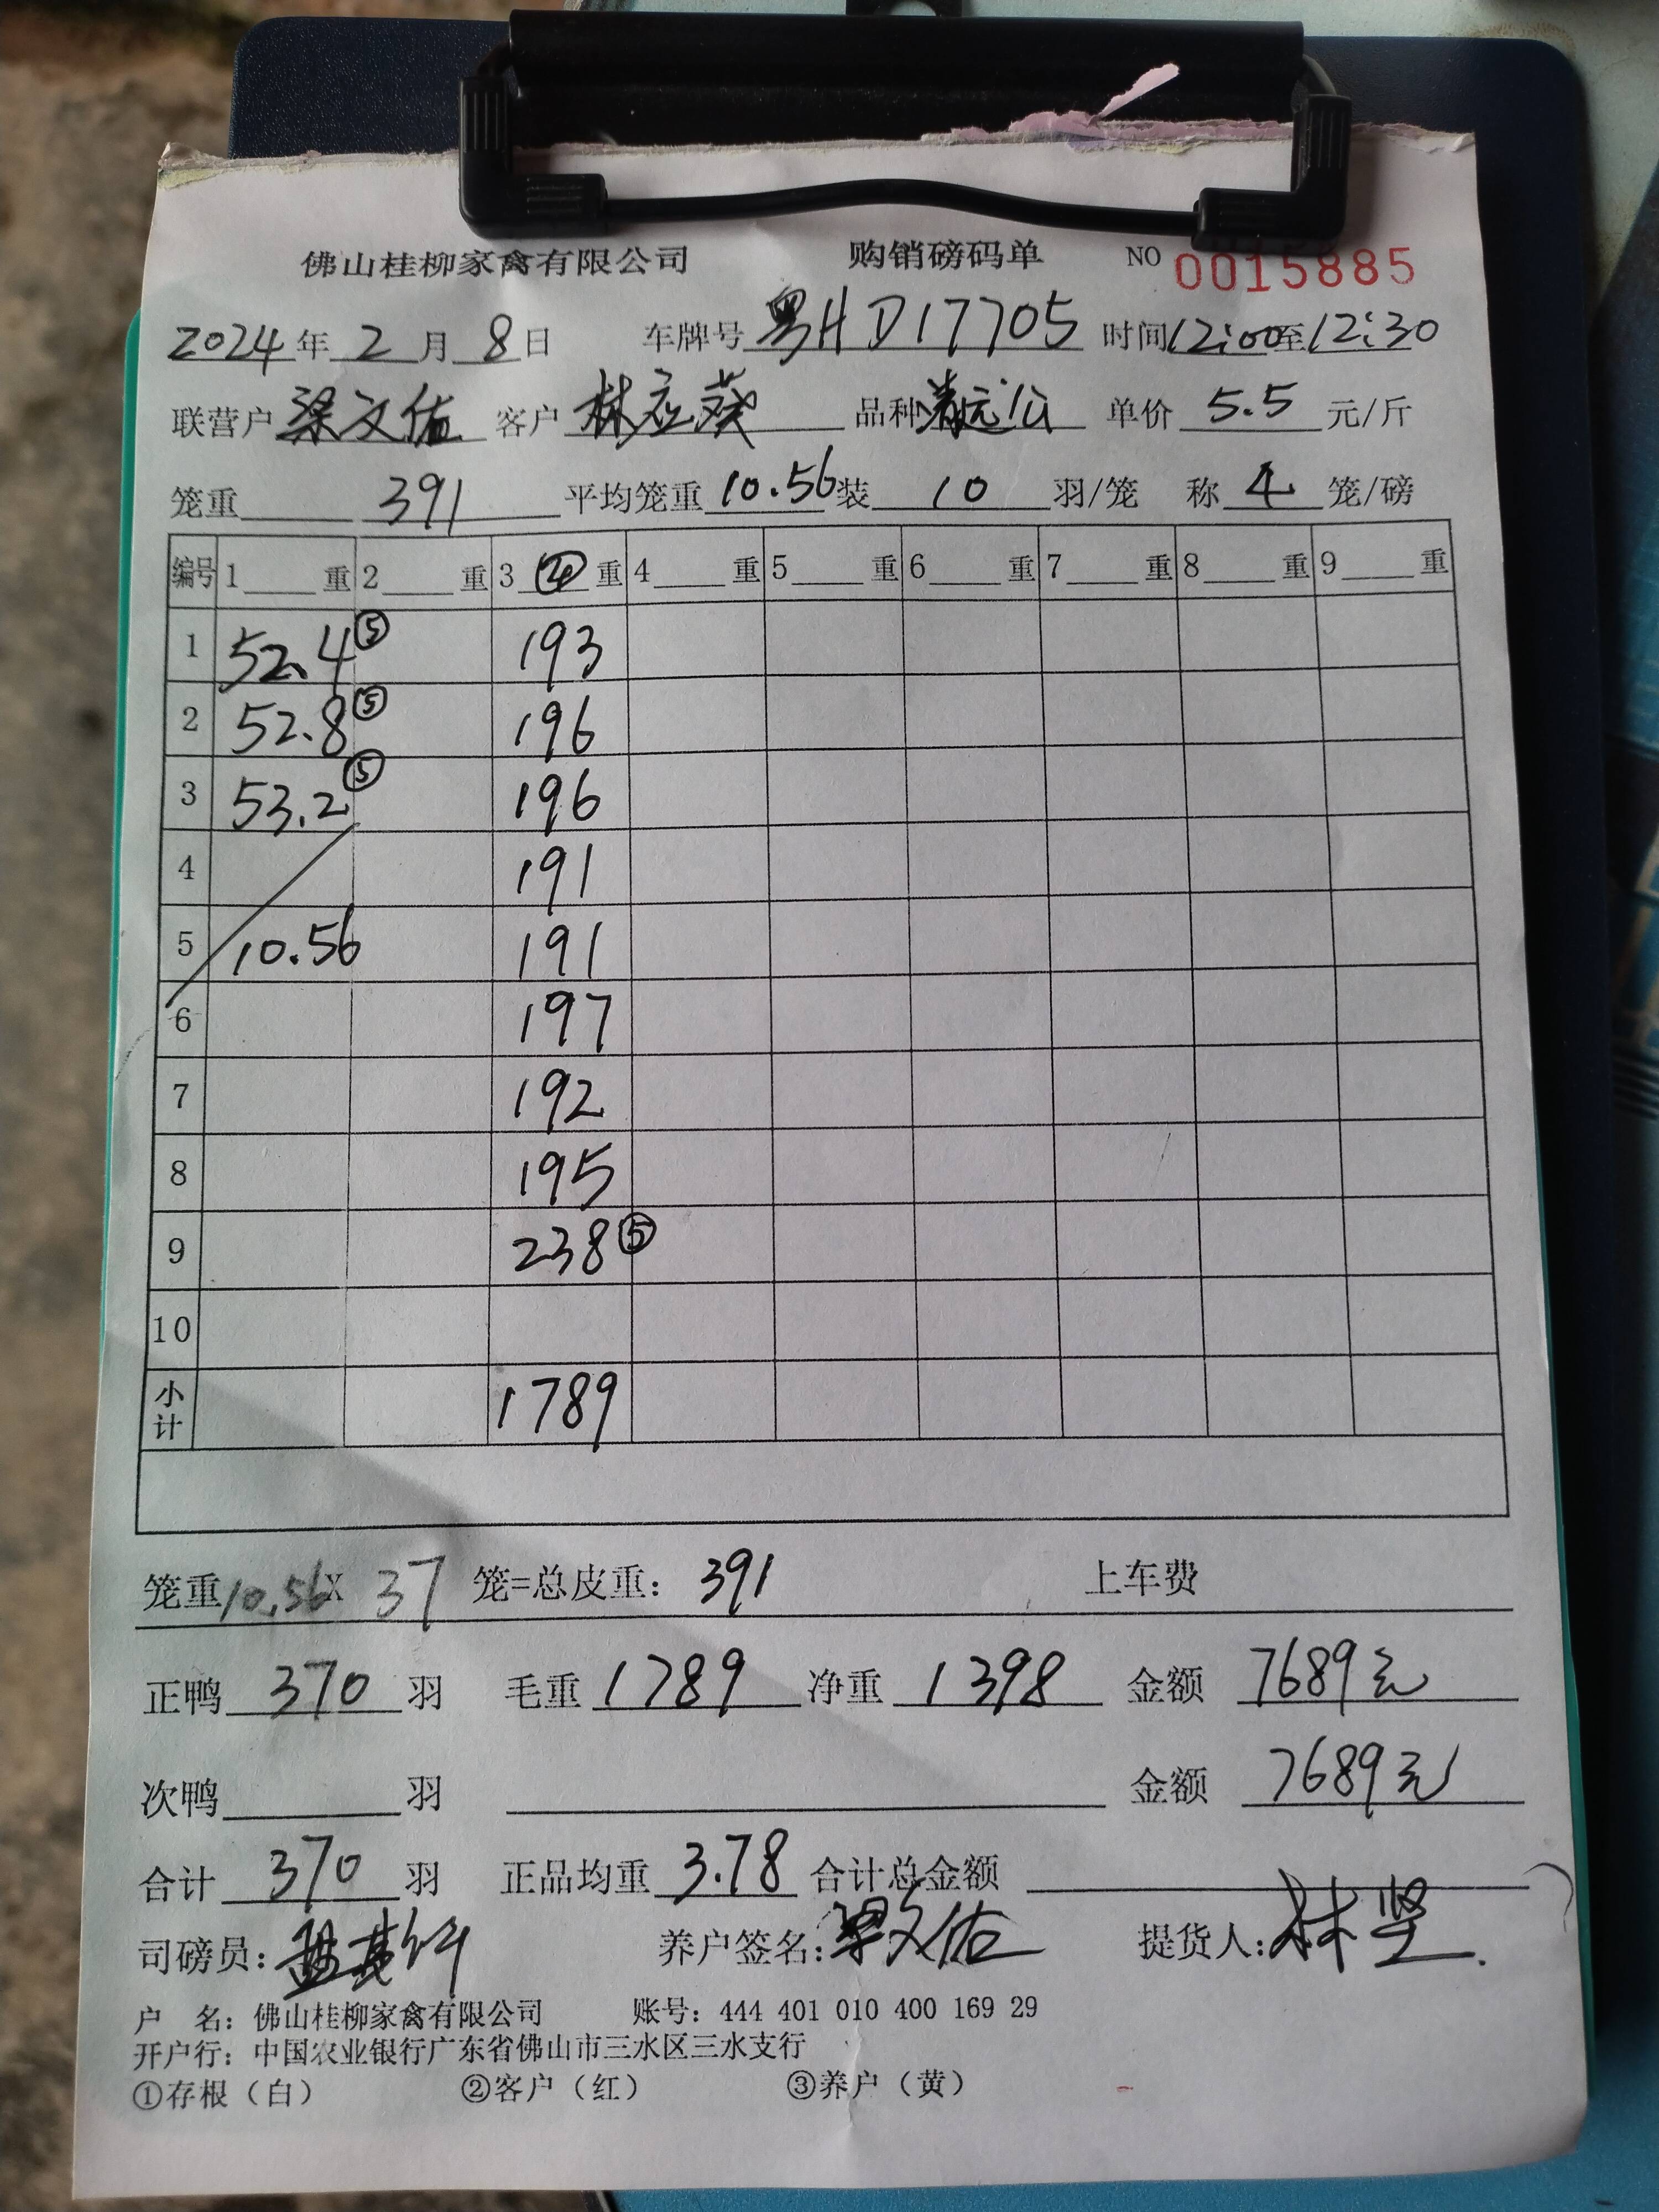 佛山桂柳家禽有限公司 购销磅码单 NO 0015885
2024年2月8日 车牌号 粤HD17705 时间12:00至12:30
联营户 梁文佑 客户 林应 品种 清远公 单价 5.5 元/斤
笼重 391 平均笼重 10.56 装 10 羽/笼 称 4 笼/磅
编号 1 重 2 重 3 ④ 重 4 重 5 重 6 重 7 重 8 重 9 重
1 52.4⑤ 193
2 52.8⑤ 196
3 53.2⑤ 196
4 191
5 10.56 191
6 197
7 192
8 195
9 238⑤
10
小计 1789
笼重10.56X 37 笼=总皮重：391 上车费
正鸭 370 羽 毛重 1789 净重 1398 金额 7689元
次鸭 羽 金额 7689元
合计 370 羽 正品均重 3.78 合计总金额
司磅员： 养户签名：梁文佑 提货人：林坚
户 名：佛山桂柳家禽有限公司 账号：444 401 010 400 169 29
开户行：中国农业银行广东省佛山市三水区三水支行
①存根（白） ②客户（红） ③养户（黄）